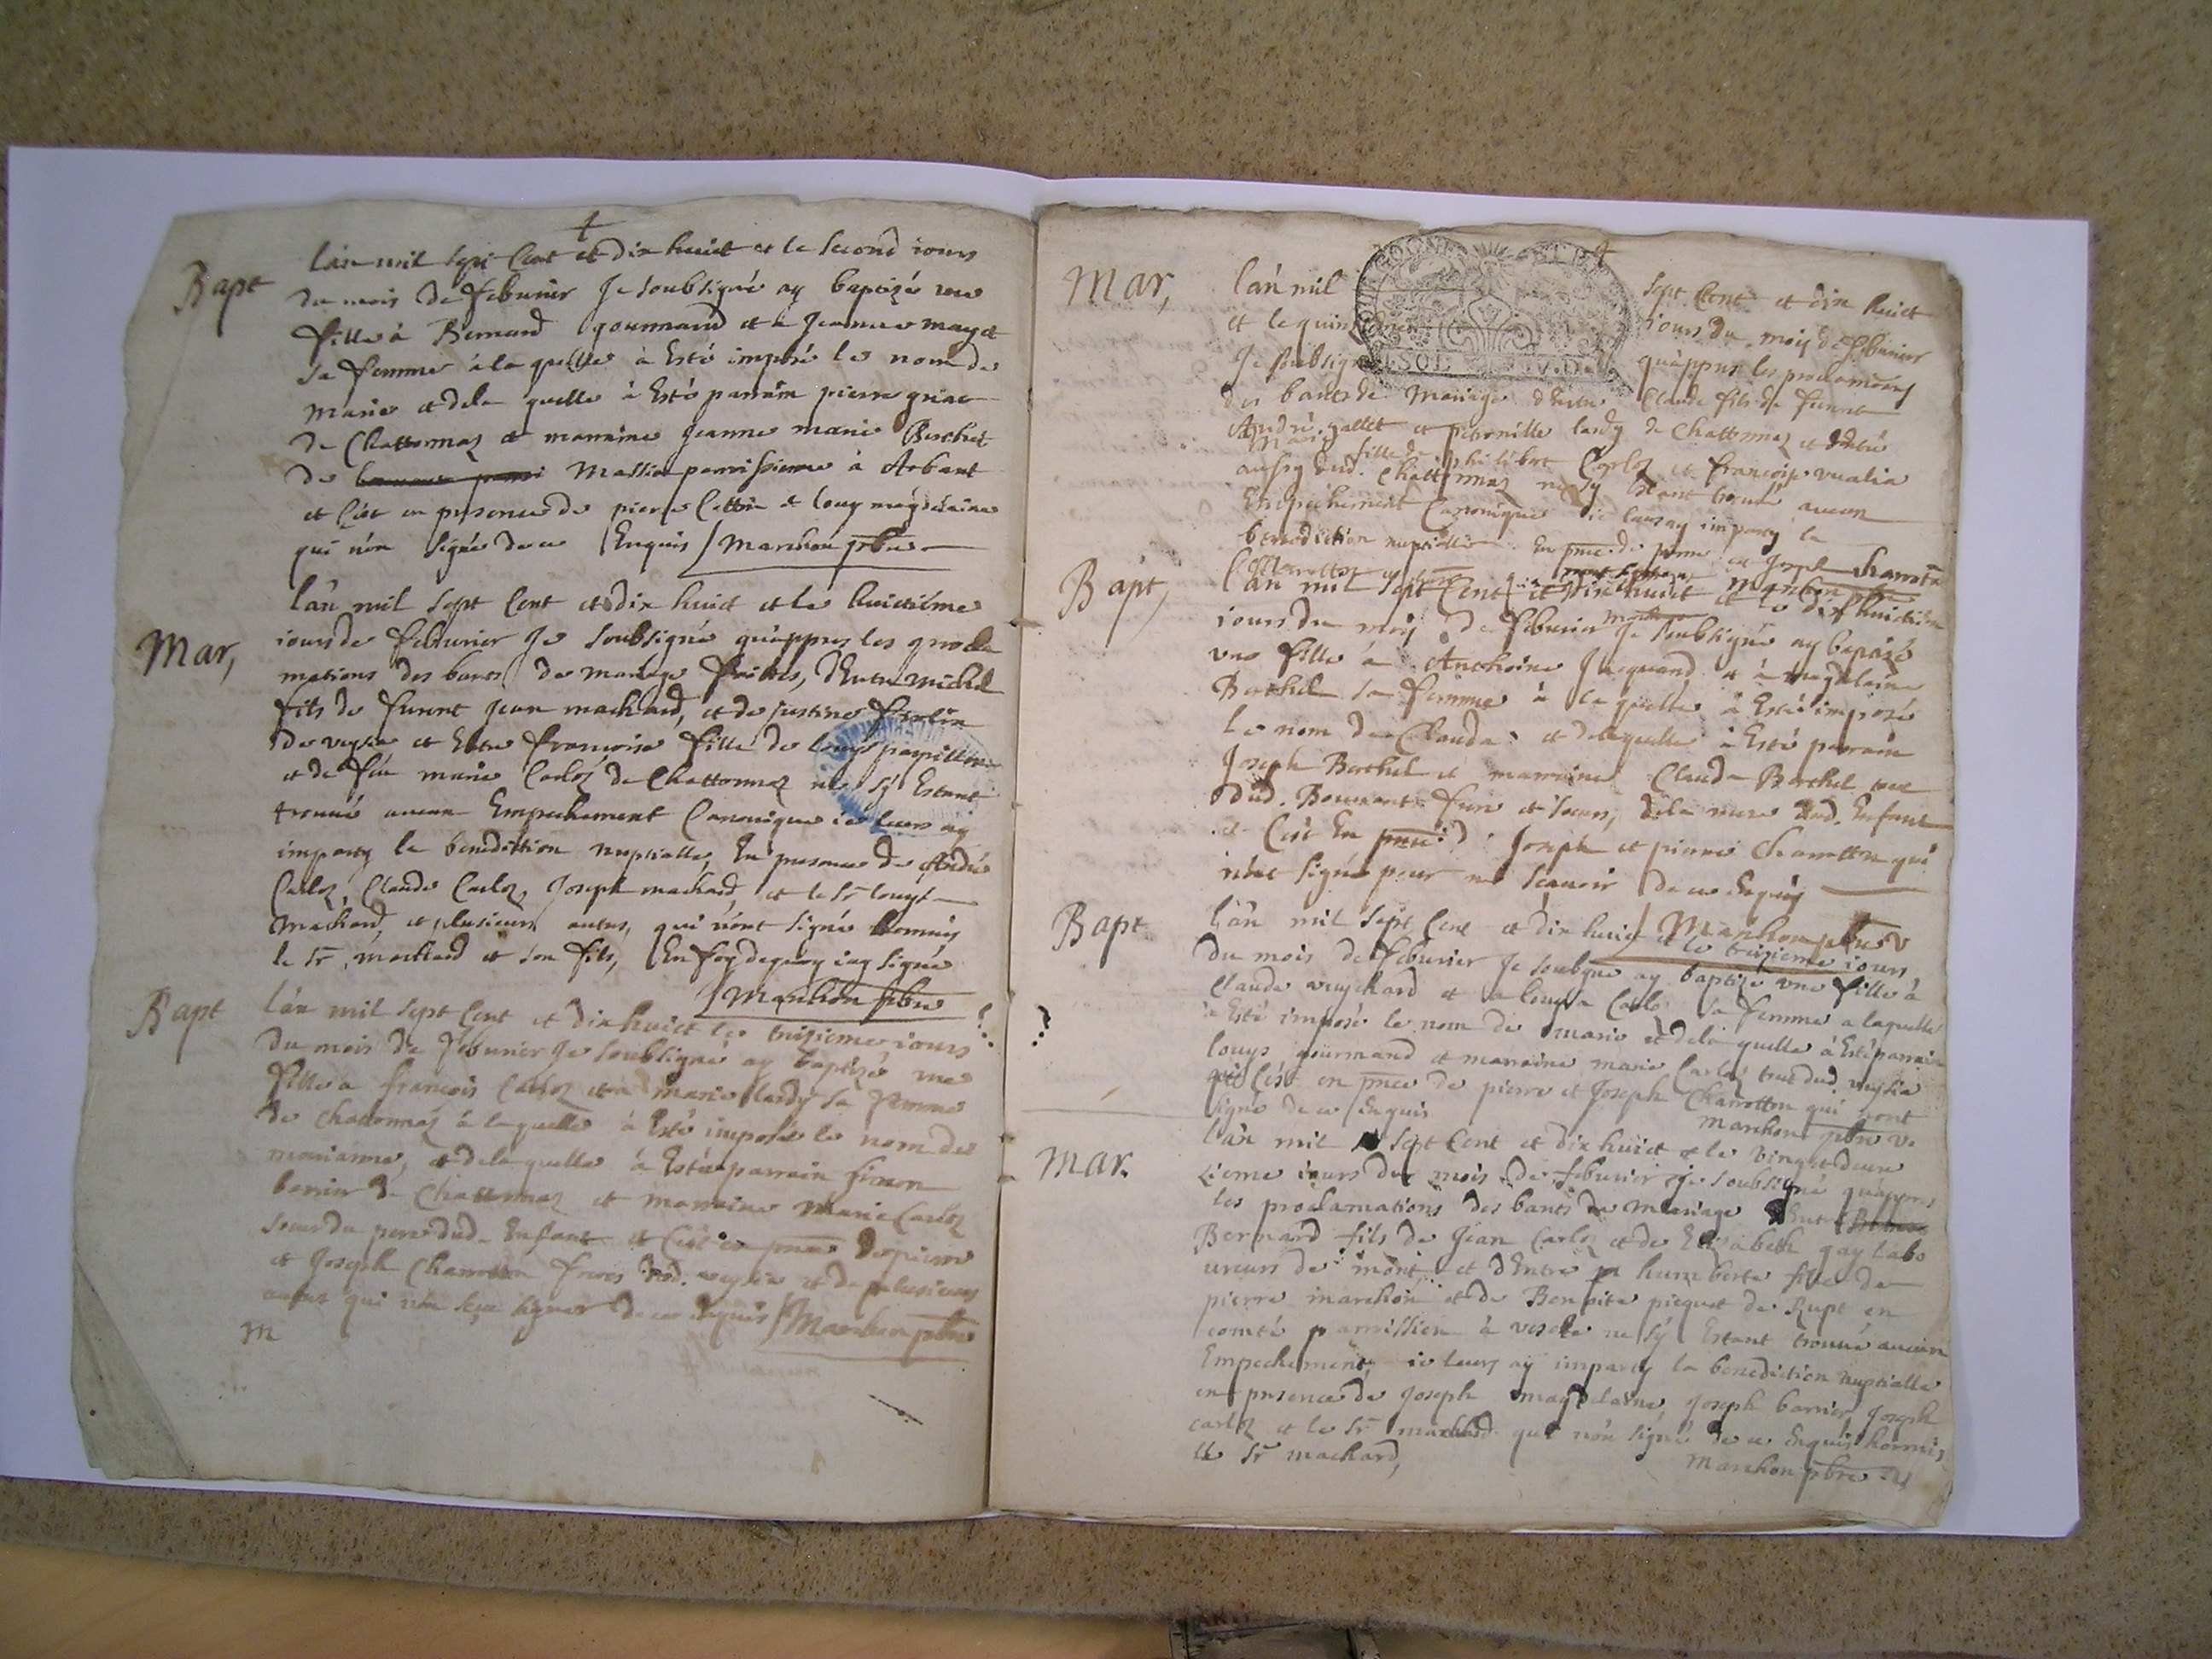 Bapt
l'an mil sept Cent et dix huict et le second iours
du mois de Feburier Je soubsigné ay baptizé une
fille à Bernard gourmand et a Jeanne
sa femme à la quelle à Esté imposé le nom de
marie et dela quelle à Esté parrain pierre
de Chattonnaz et marraine Jeanne marie Berchet
de Massia parroissienne à Arbant
et C'est en presence de pierre et Louy magdelaine
qui n'on signé de ce Enquis Marchon pbre
Mar,
l'an mil sept Cent et dix huict et le huictiéme
iours de Feburier Je soubsigné qu'appres les procla
mations des bancs de mariage faittes, d'Entre michel
fils de furent Jean machard, et de justine
de veysia et Entre françoise fille de Louys papillon
et de feu marie Carloz de Chattonnaz ne s'y Estant
trouué aucun Empechement Canonique ie leurs ay
imparty la benediction nuptialle, En presence de André
Carloz, Claude Carloz, Joseph machard, et le Sr Louys
Machard, et plusieurs autres, qui n'ont signé hormis
le Sr machard et son fils, En foy de quoy iay signé
Marchon pbre
Bapt
l'an mil sept Cent et dix huict le treizieme iours
du mois de Feburier Je soubsigné ay baptizé une
fille a francois Carloz et à marie lardy sa femme
de Chatonnaz à la quelle à Esté imposée le nom de
marianne, et dela quelle à Esté parrain simon
barrier de Chattonnaz et marraine Marie Carloz
soeur du pere dud. Enfant et C'est en pnce de pierre
et Joseph Charotton freres dud. veysia et de plusieurs
autres qui n'on sceu signer de ce Enquis Marchon pbre
m
Mar,
l'an mil sept Cent et dix huict
et le quinzieme iours du mois de Feburier
Je soubsigné qu'appres les proclamaons
des bancs de Mariage d'Entre Claude fils de furent
André gallet et petronille lardy de Chattonnaz et Entre
Marie fille de philibert Carloz et françoise vualia
aussy dud. Chattonnaz ne s'y Estant trouué aucun
Empechement Canonique ie leurs ay imparty la
benediction nuptialle En pnce de pierre et Joseph Charotton
Marchon pbre
Bapt,
l'an mil sept Cent et dix huict et le dix huictiem
iours du mois de Feburier Je soubsigné ay baptizé
une fille à Anthoine Jacquand et à magdelaine
Berthel sa femme à la quelle à Esté imposé
le nom de Clauda et dela quelle à Esté parrain
Joseph Berthel et marraine Claude Berthel tous
dud. frere et soeur, dela mere dud. Enfant
et C'est En pnce d Joseph et pierre Charotton qui
n'ont signé pour ne scauoir de ce Enquis
Marchon pbre
Bapt
l'an mil sept Cent et dix huict et le treizieme iours
du mois de Feburier Je soubgné ay baptizé une fille à
Claude vuychard et a Louyse Carlo sa femme a laquelle
à Esté imposé le nom de marie et dela quelle à Esté parrain
Louys gourmand et marraine marie Carloz tous dud. veysia
C'est en pnce de pierre et Joseph Charotton qui n'ont
signé de ce Enquis Marchon pbre
Mar.
l'an mil sept Cent et dix huict et le vingt deux
zieme iours du mois de feburier je soubsigné qu'appres
les proclamations des bancs de Mariage d'Entre
Bernard fils de Jean Carloz et de Elizabeth gay labo
ureurs de mont et d'Entre humberte fille de
pierre marchon et de Benoite picquet de Rupt en
comté parroissien à ne s'y Estant trouué aucun
Empechement, ie leurs ay imparty la benediction nuptialle
en presence de Joseph magdelaine, Joseph barrier Joseph
carloz et le Sr machard qui n'on signé de ce Enquis hormis
le Sr machard,
Marchon pbre